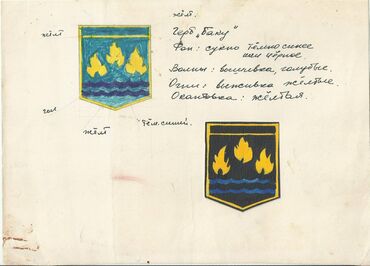 жёлт.
жёлт
Герб „Баку"
Фон: сукно тёмносинее
или чёрное
Волны: вышивка, голубые.
Огни: вышивка жёлтые.
Окантовка: жёлтая.
гол.
тём. синий.
жёлт